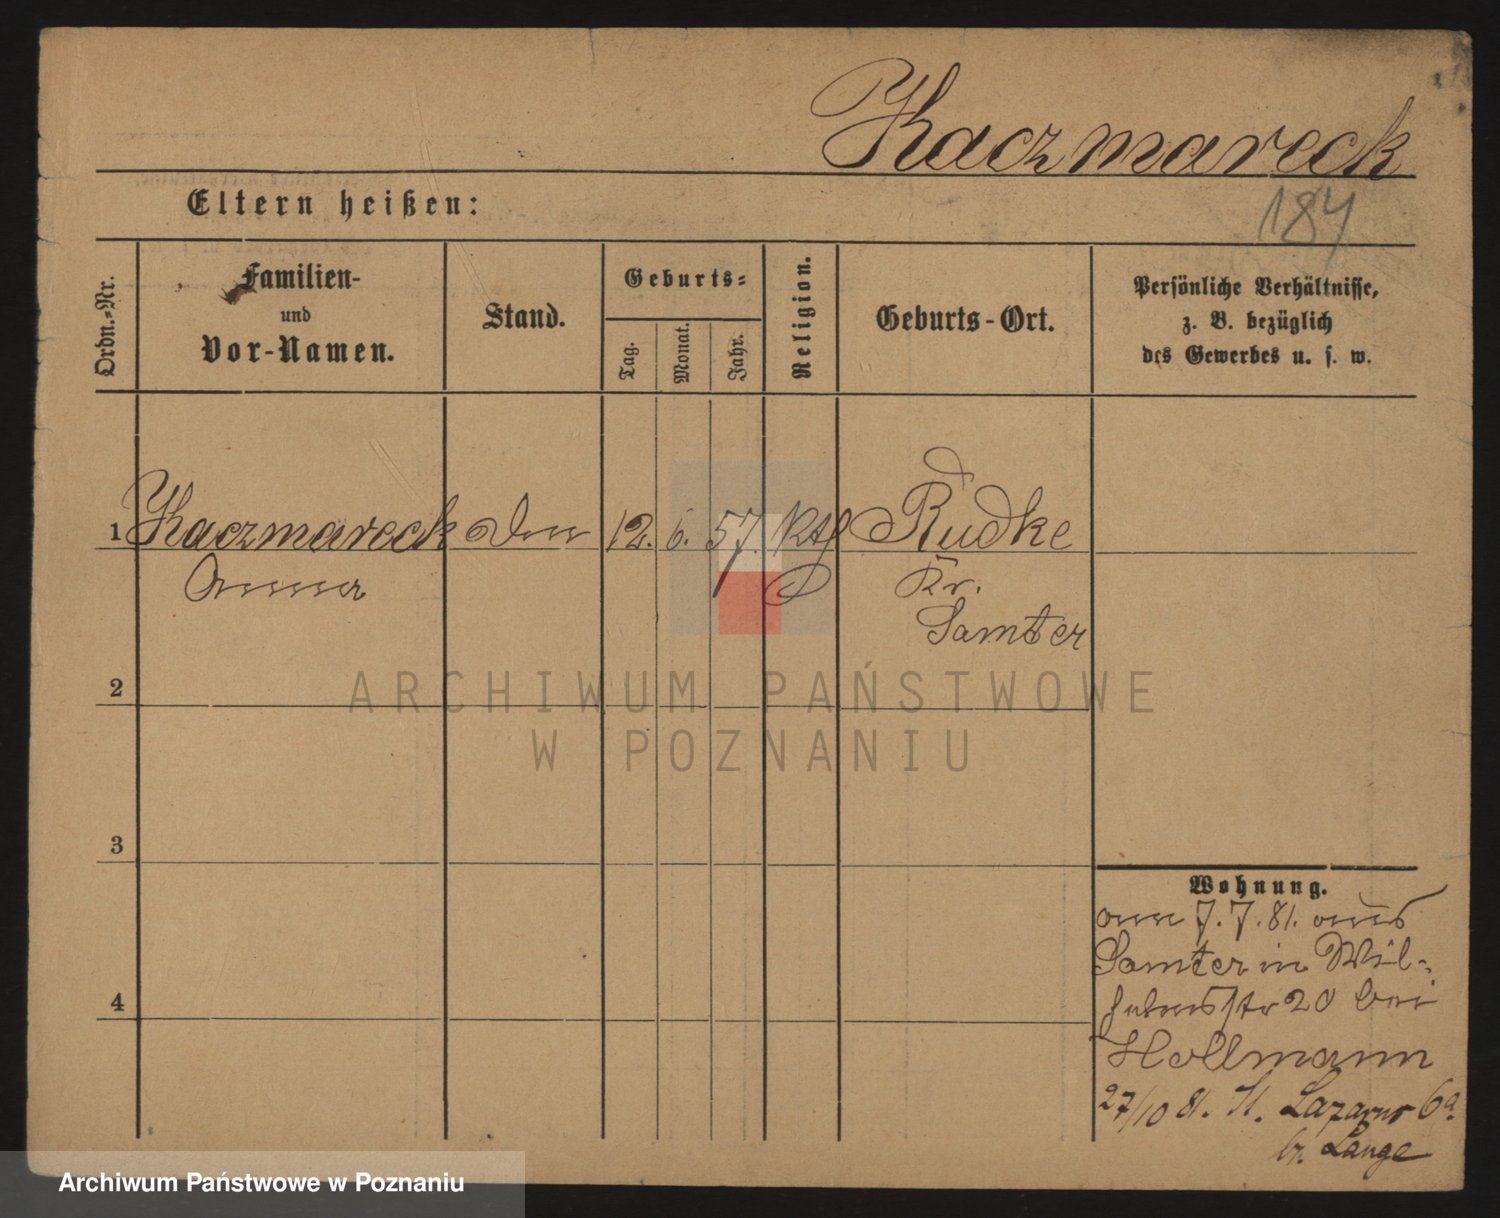 Kaczmareck
184
Eltern heißen:
Ordn.-Nr.
Familien-
und
Vor-Namen.
Stand.
Geburts-
Tag.
Monat.
Jahr.
Religion.
Geburts-Ort.
Persönliche Verhältnisse,
z. B. bezüglich
des Gewerbes u. s. w.
1 Kaczmareck 12. 6. 57. kth Rudke
Anna Kr.
Samter
2
ARCHIWUM PAŃSTWOWE
W POZNANIU
3
4
Wohnung.
am 7.7.81. aus
Samter in Wil-
helmsstr 20 bei
Hollmann
27/10 81. St. Lazarus 6a.
b. Lange
Archiwum Państwowe w Poznaniu